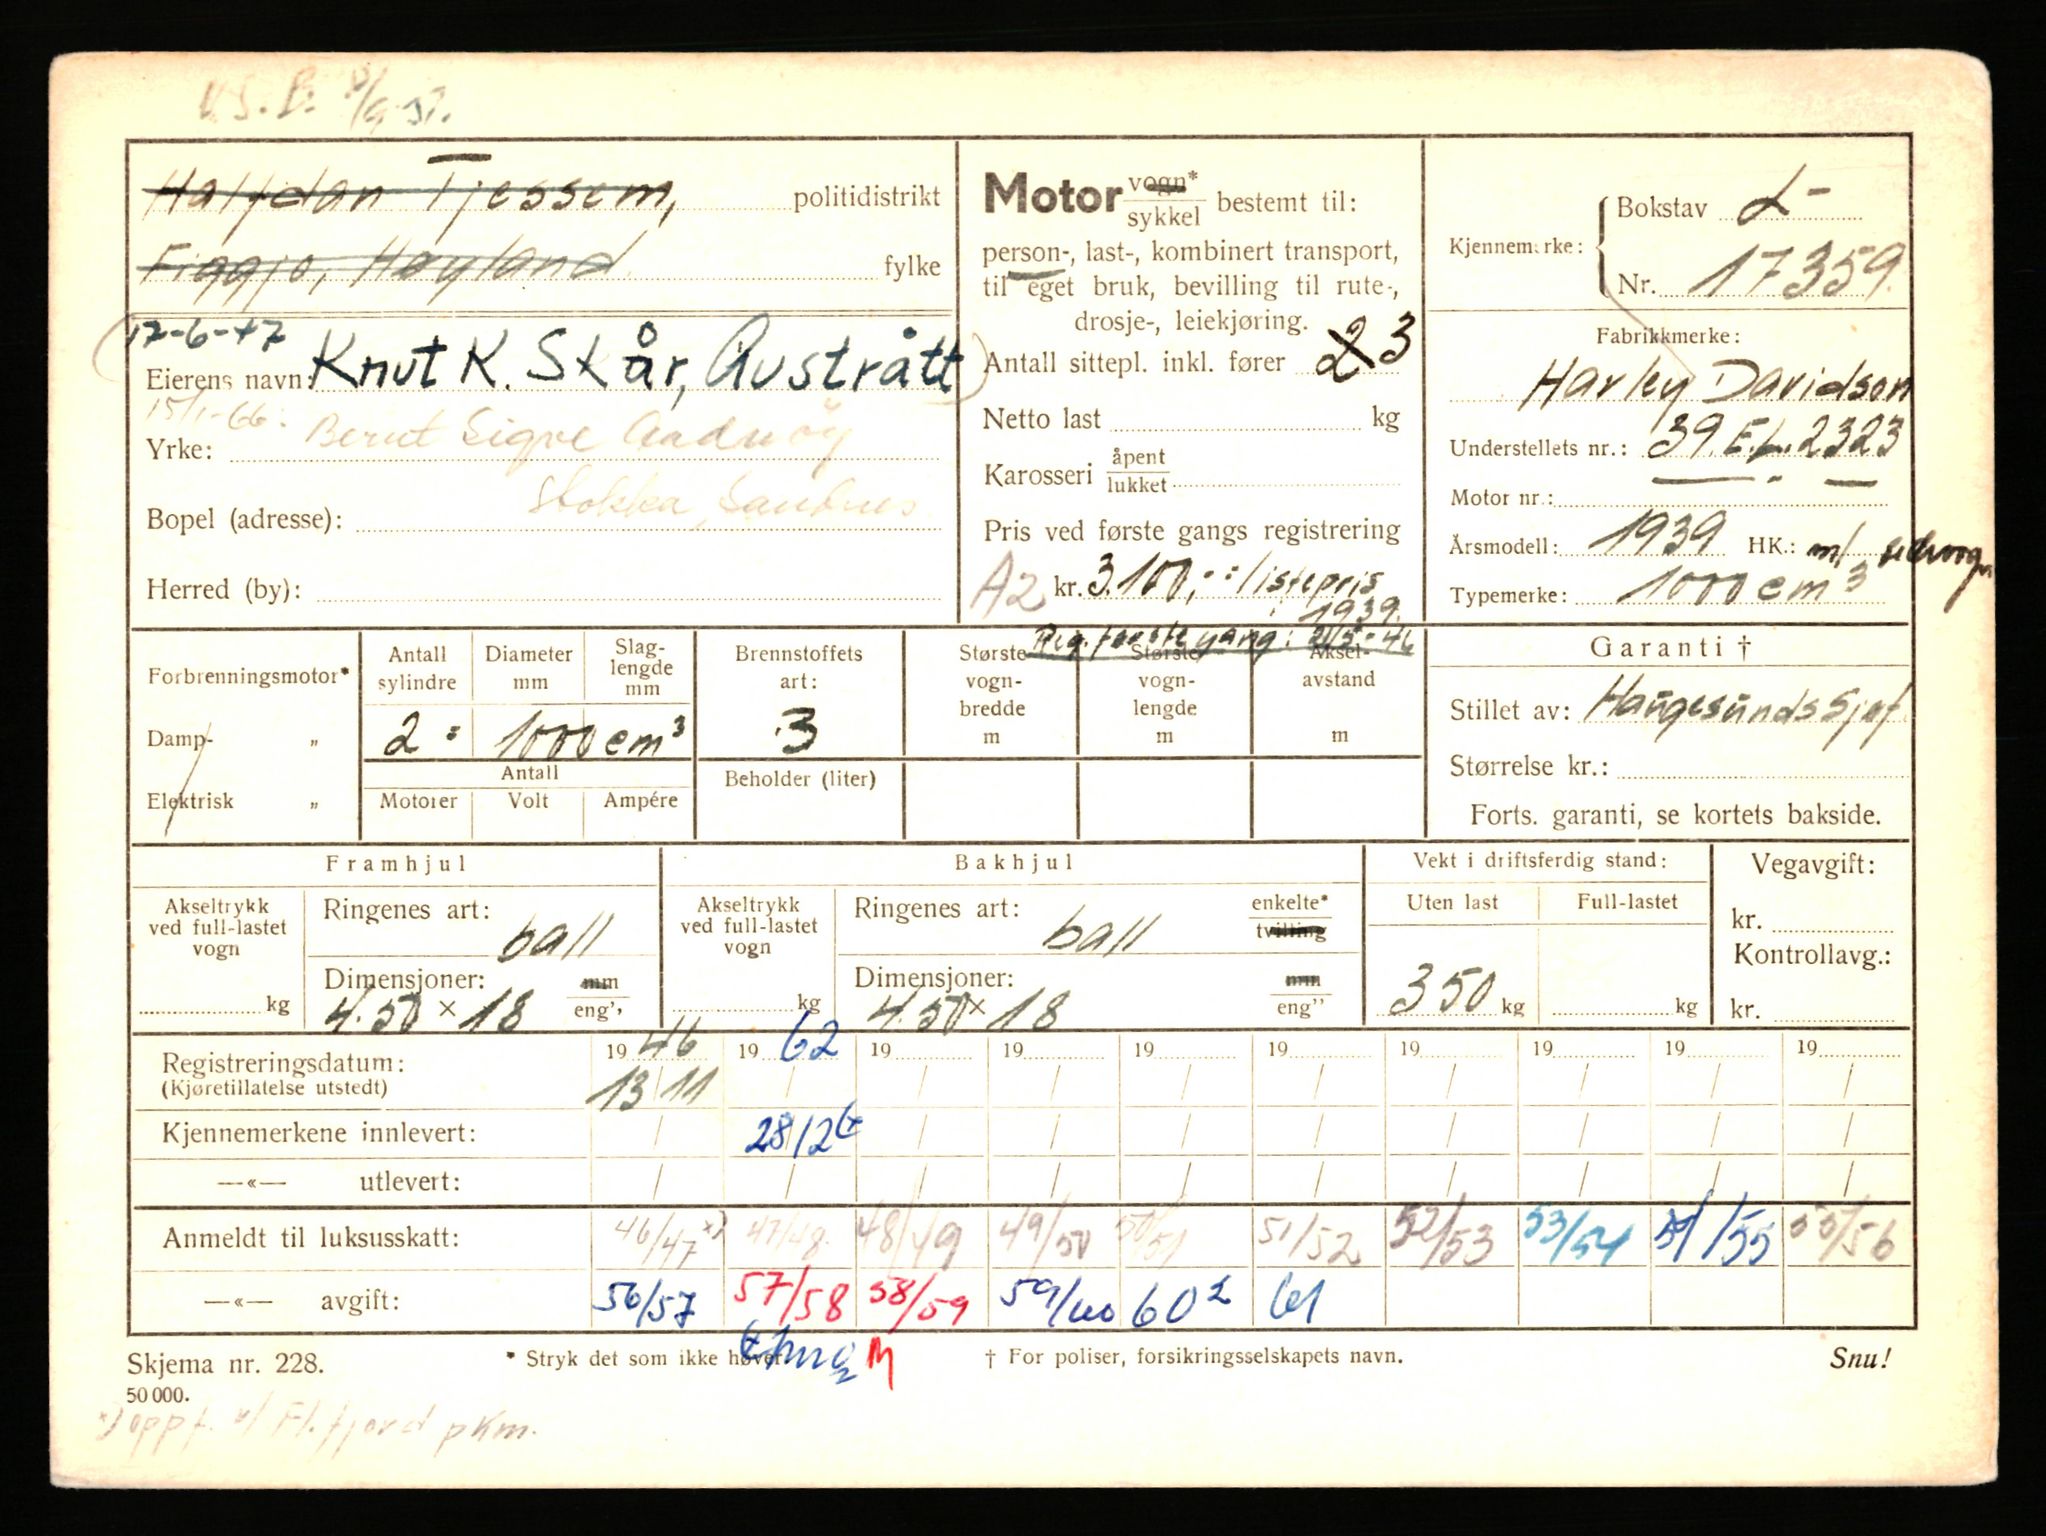 Halfdan Tjessem, politidistrikt
Figgjo, Høyland fylke
17-6-47
Eierens navn: Knut K. Skår, Austrått
15/1-66.
Yrke: Bernt Sigve Aadnøy
Bopel (adresse): Stokka, Sandnes
Herred (by):
Motor vogn*
sykkel bestemt til:
person-, last-, kombinert transport,
til eget bruk, bevilling til rute-,
drosje-, leiekjøring.
Antall sittepl. inkl. fører 2 3
Netto last kg
Karosseri åpent
lukket
Pris ved første gangs registrering
A2 kr. 3.100,-: listepris
1939.
Reg. første gang:
Kjennemerke: Bokstav L-
Nr. 17359.
Fabrikkmerke:
Harley Davidson
Understellets nr.: 39.E.L.2323
Motor nr.:
Årsmodell: 1939 HK.: m/ sidevogn
Typemerke: 1000 cm3
Forbrenningsmotor*
Damp- „
Elektrisk „
Antall sylindre
Diameter mm
Slaglengde mm
2 = 1000 cm3
Antall
Motorer Volt Ampére
Brennstoffets art:
3
Beholder (liter)
Største vogn-bredde m
Største vogn-lengde m
Aksel-avstand m
Garanti †
Stillet av: Haugesunds Sjøf.
Størrelse kr.:
Forts. garanti, se kortets bakside.
Framhjul
Akseltrykk ved full-lastet vogn kg
Ringenes art: ball
Dimensjoner: mm
4.50 × 18 eng''
Bakhjul
Akseltrykk ved full-lastet vogn kg
Ringenes art: ball enkelte*
tvilling
Dimensjoner: mm
4.50 × 18 eng''
Vekt i driftsferdig stand:
Uten last Full-lastet
350 kg kg
Vegavgift:
kr.
Kontrollavg.:
kr.
Registreringsdatum: 1946 1962 19 19 19 19 19 19 19 19
(Kjøretillatelse utstedt) 13/11
Kjennemerkene innlevert: 28/12
—«— utlevert:
Anmeldt til luksusskatt: 46/47 *) 47/48. 48/49 49/50 50/51 51/52 52/53 53/54 54/55 55/56
—«— avgift: 56/57 57/58 58/59 59/60 60 2 61
Skjema nr. 228. * Stryk det som ikke høver. M † For poliser, forsikringsselskapets navn. Snu!
50 000.
*) oppf. v/ Fl. fjord pkm.